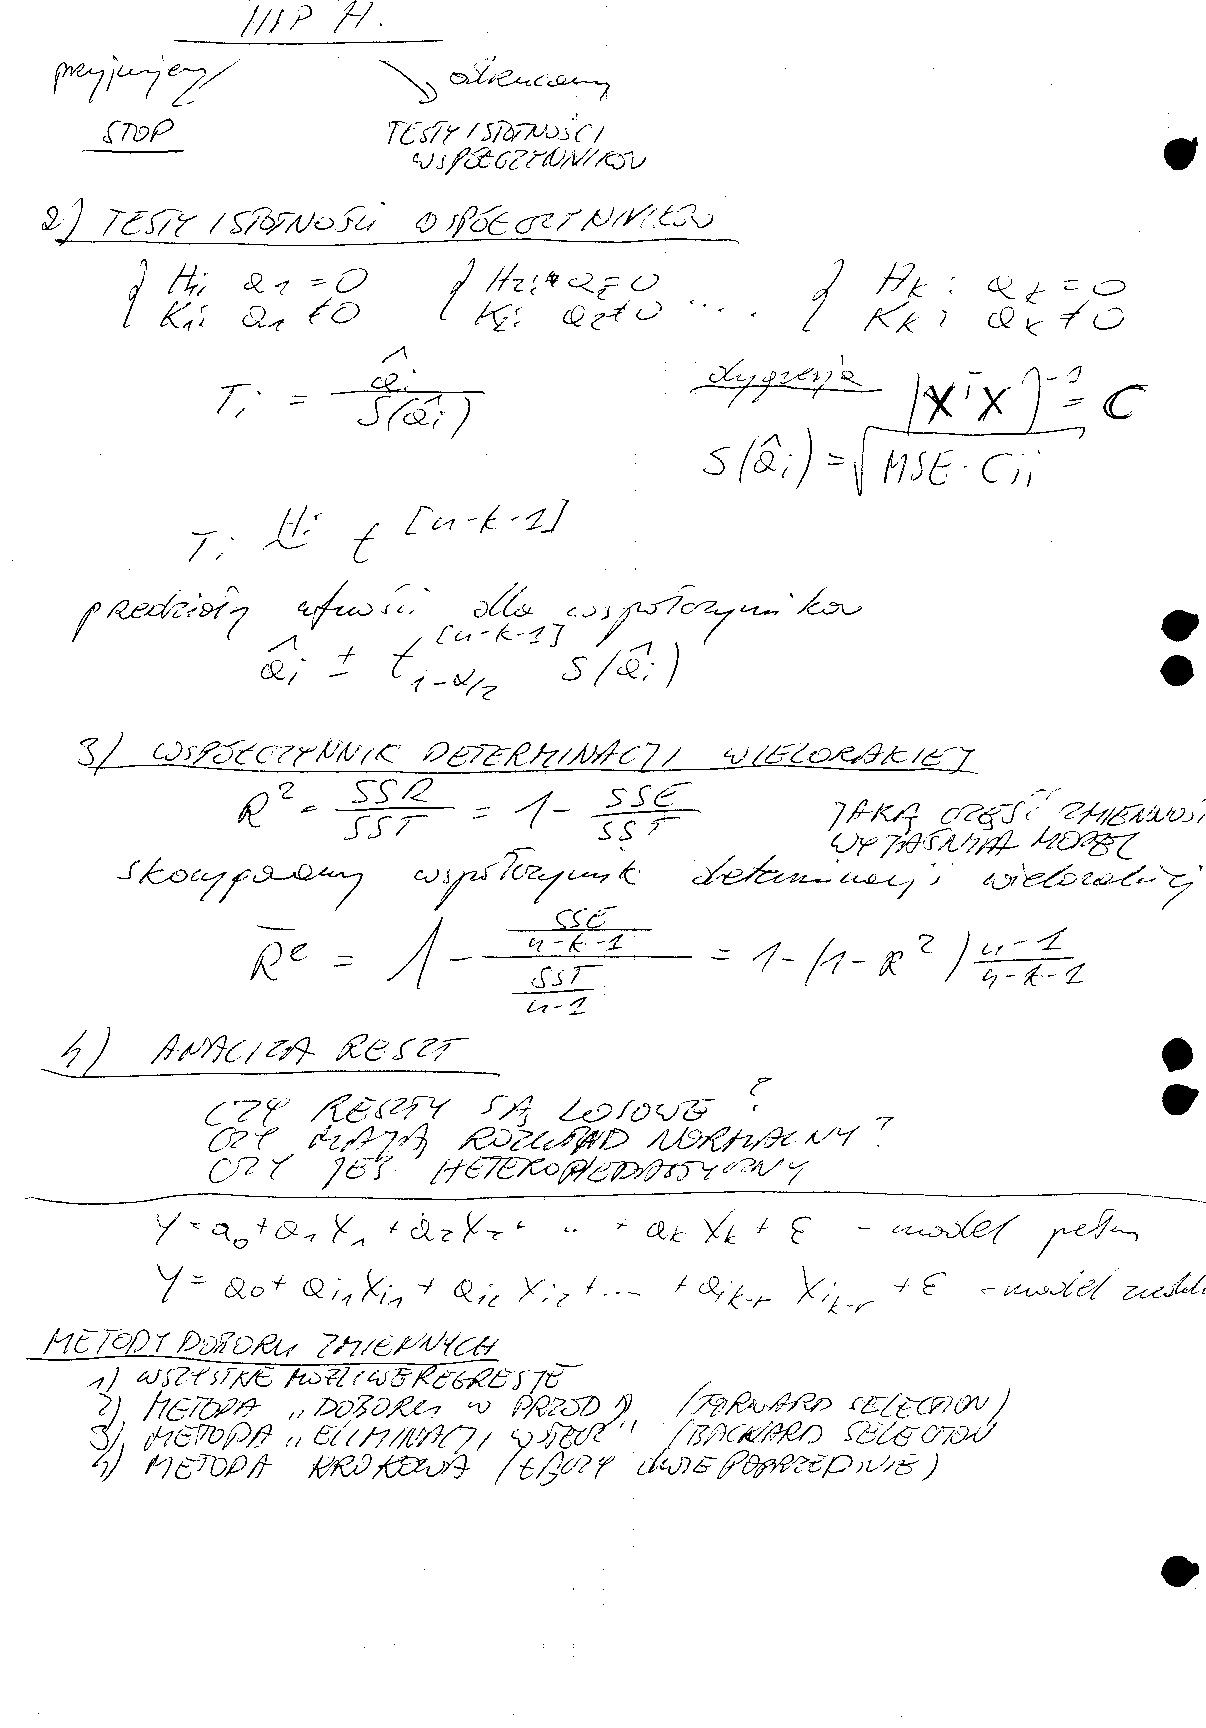 HIP H.
przyjmujemy odrzucamy
STOP TESTY ISTOTNOŚCI
WSPÓŁCZYNNIKÓW
2) TESTY ISTOTNOŚCI WSPÓŁCZYNNIKÓW
{ H₁: a₁ = 0 { H₂: a₂ = 0 { Hₖ: aₖ = 0
K₁: a₁ ≠ 0 K₂: a₂ ≠ 0 .... Kₖ: aₖ ≠ 0
Tᵢ = âᵢ / S(âᵢ) dygresja [XᵀX]⁻¹ = C
S(âᵢ) = √(MSE · Cᵢᵢ)
Tᵢ ~ᴴⁱ t^[n-k-1]
przedziały ufności dla współczynników
âᵢ ± t^[n-k-1]_{1-α/2} S(âᵢ)
3) WSPÓŁCZYNNIK DETERMINACJI WIELORAKIEJ
R² = SSR/SST = 1 - SSE/SST JAKĄ CZĘŚĆ ZMIENNOŚCI
WYJAŚNIA MODEL
skorygowany współczynnik determinacji wielorakiej
R̄² = 1 - (SSE/(n-k-1))/(SST/(n-1)) = 1-(1-R²) (n-1)/(n-k-1)
4) ANALIZA RESZT
CZY RESZTY SĄ LOSOWE?
CZY MAJĄ ROZKŁAD NORMALNY?
CZY JEST HETEROSCEDASTYCZNY
Y = a₀ + a₁X₁ + a₂X₂ + .. + aₖXₖ + ε - model pełny
Y = a₀ + aᵢ₁Xᵢ₁ + aᵢ₂Xᵢ₂ + ... + a_{ik-r} X_{ik-r} + ε - model
METODY DOBORU ZMIENNYCH
1) WSZYSTKIE MOŻLIWE REGRESJE
2) METODA „DOBORU W PRZÓD” (FORWARD SELECTION)
3) METODA „ELIMINACJI WSTECZ” (BACKWARD SELECTION
4) METODA KROKOWA (ŁĄCZY DWIE POPRZEDNIE)